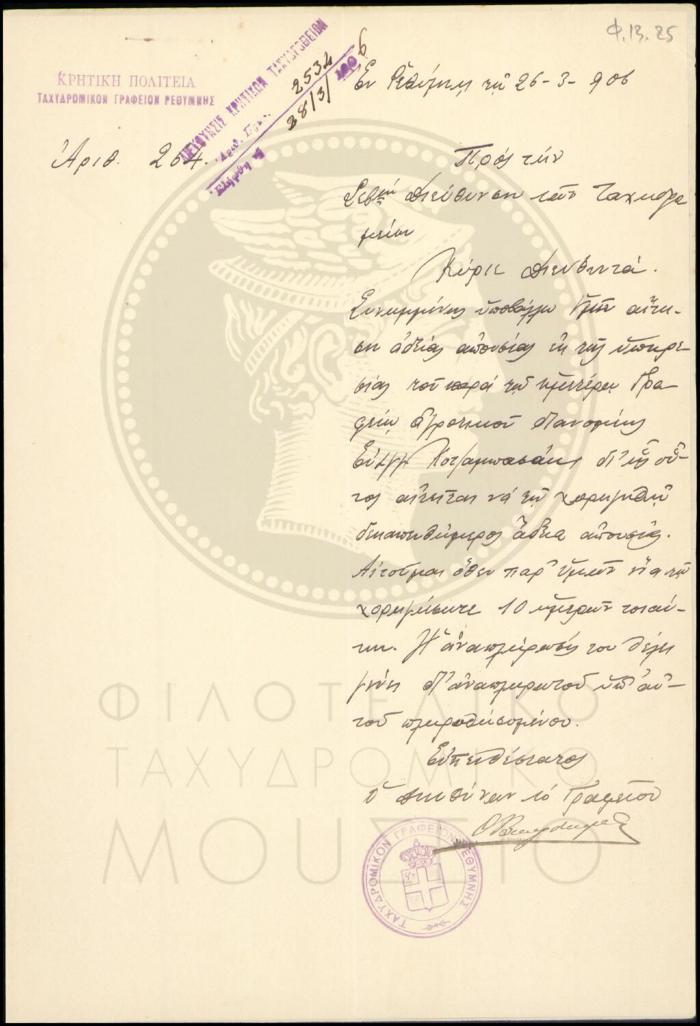 Φ.13.25
ΚΡΗΤΙΚΗ ΠΟΛΙΤΕΙΑ
ΤΑΧΥΔΡΟΜΙΚΟΝ ΓΡΑΦΕΙΟΝ ΡΕΘΥΜΝΗΣ
ΔΙΕΥΘΥΝΣΙΣ ΚΡΗΤΙΚΩΝ ΤΑΧΥΔΡΟΜΕΙΩΝ
2534
28/3/1906
Ἐν Ρεθύμνῃ τῇ 26-3-906
Ἀριθ. 264.
Πρός τήν
Σεβ. Διεύθυνσιν τῶν Ταχυδρο
μείων
Κύριε Διευθυντά.
Συνημμένως ὑποβάλλω ὑμῖν αἴτη-
σιν ἀδείας ἀπουσίας ἐκ τῆς ὑπηρε-
σίας τοῦ παρά τῷ ἡμετέρῳ Γρα
φείῳ ἀγροτικοῦ διανομέως
Κοτζαμπασάκη δι' ἧς οὗ-
τος αἰτεῖται νά τῷ χορηγηθῇ
δεκαπενθήμερος ἄδεια ἀπουσίας.
Αἰτοῦμαι ὅθεν παρ' ὑμῶν ἵνα τῷ
χορηγήσητε 10 ἡμερῶν τοιαύ-
την. Ἡ ἀναπλήρωσίς του θέλει
γίνῃ δι' ἀναπληρωτοῦ ὑπ' αὐ-
τοῦ πληρωθησομένου.
Εὐπειθέστατος
ὁ Διευθύνων τό Γραφεῖον
ΤΑΧΥΔΡΟΜΙΚΟΝ ΓΡΑΦΕΙΟΝ ΡΕΘΥΜΝΗΣ
ΦΙΛΟΤΕΛΙΚΟ
ΤΑΧΥΔΡΟΜΙΚΟ
ΜΟΥΣΕΙΟ